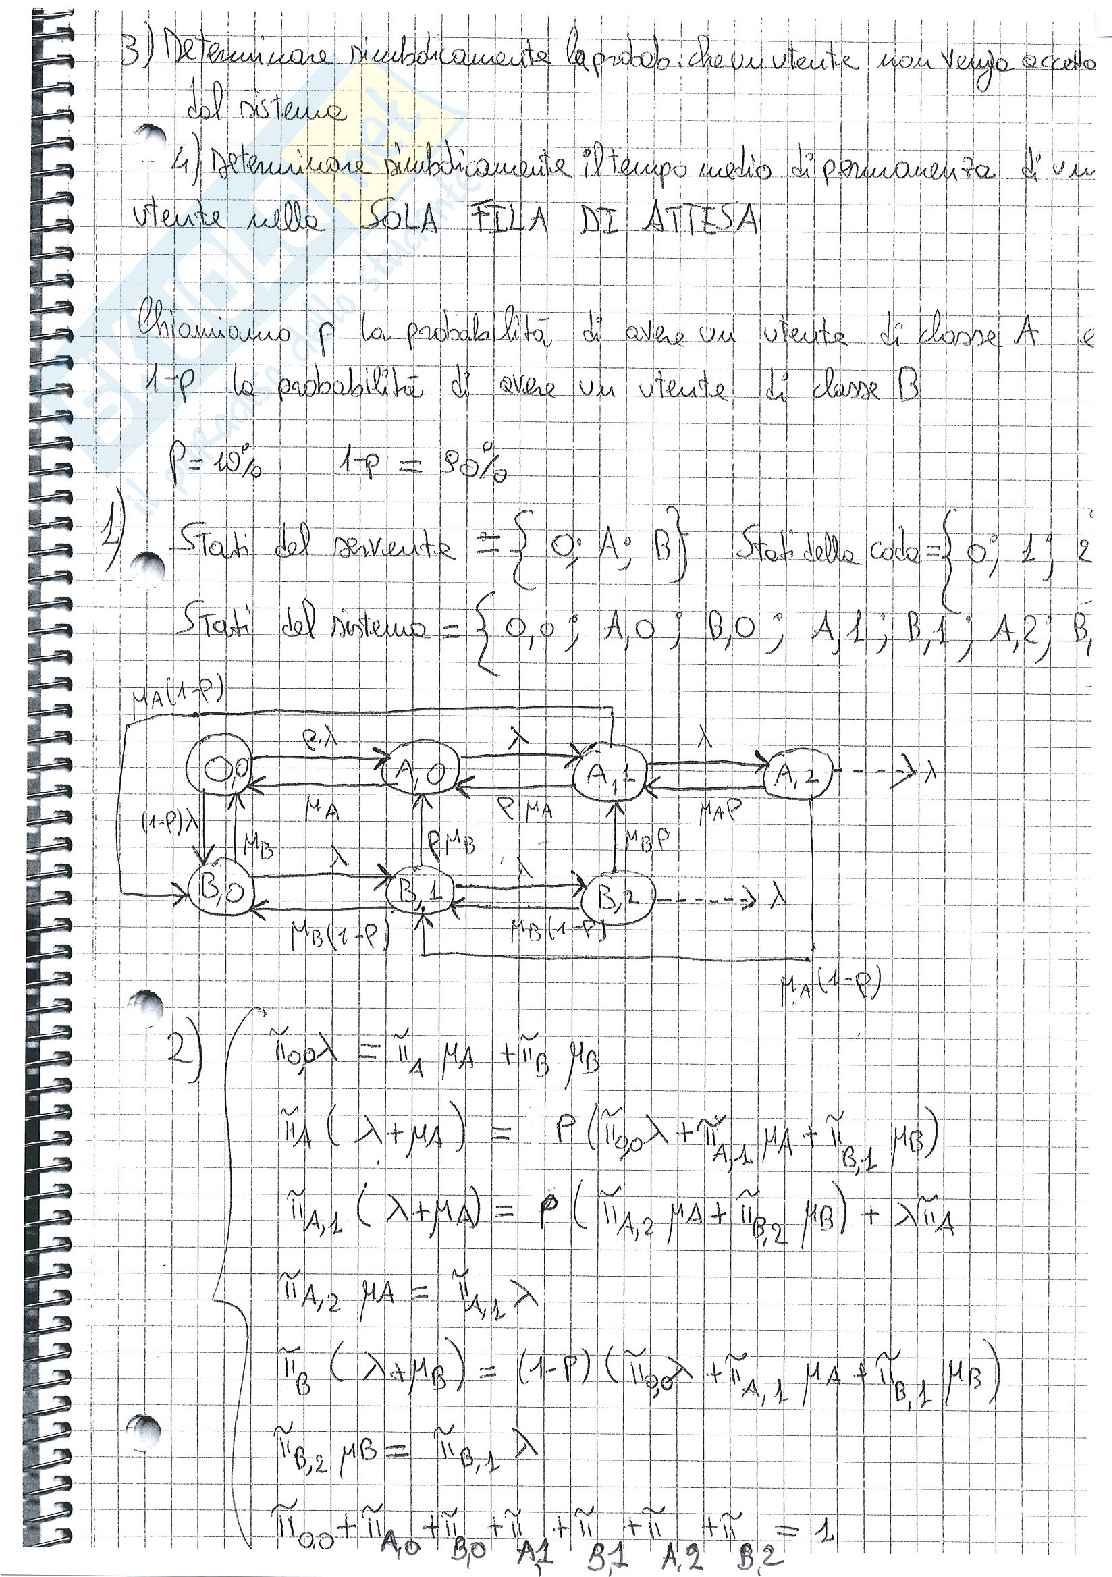 3) Determinare simbolicamente la probab. che un utente non venga accetta
dal sistema
4) Determinare simbolicamente il tempo medio di permanenza di un
utente nella SOLA FILA DI ATTESA
Chiamiamo p la probabilità di avere un utente di classe A e
1-p la probabilità di avere un utente di classe B
P=10% 1-p = 90%
1) Stati del servente = { 0; A; B} Stati della coda={ 0; 1; 2
Stati del sistema = { 0,0; A,0; B,0; A,1; B,1; A,2; B,
μA(1-P)
0,0 P·λ A,0 λ A,1 λ A,2 λ
μA P μA μAP
(1-P)λ μB λ PμB λ μBP
B,0 B,1 B,2 λ
μB(1-P) μB(1-P)
μA(1-P)
2) π̃0,0λ = π̃A μA + π̃B μB
π̃A (λ+μA) = P(π̃0,0λ + π̃A,1 μA + π̃B,1 μB)
π̃A,1 (λ+μA) = P(π̃A,2 μA + π̃B,2 μB) + λπ̃A
π̃A,2 μA = π̃A,1 λ
π̃B (λ+μB) = (1-P)(π̃0,0λ + π̃A,1 μA + π̃B,1 μB)
π̃B,2 μB = π̃B,1 λ
π̃0,0 + π̃A,0 + π̃B,0 + π̃A,1 + π̃B,1 + π̃A,2 + π̃B,2 = 1